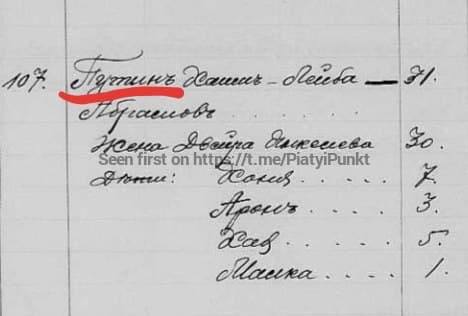 107. Путинъ Хаимъ-Лейба — 31.
Абрамовъ . . . . . .
Жена Двейра Янкелева 30.
Seen first on https://t.me/PiatyiPunkt
Дѣти: Хоня . . . . . 7.
Аронъ . . . . 3.
Хая . . . . . 5.
Малка . . . . 1.